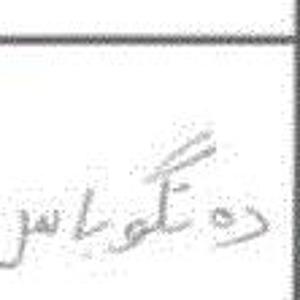 دەنگوباس